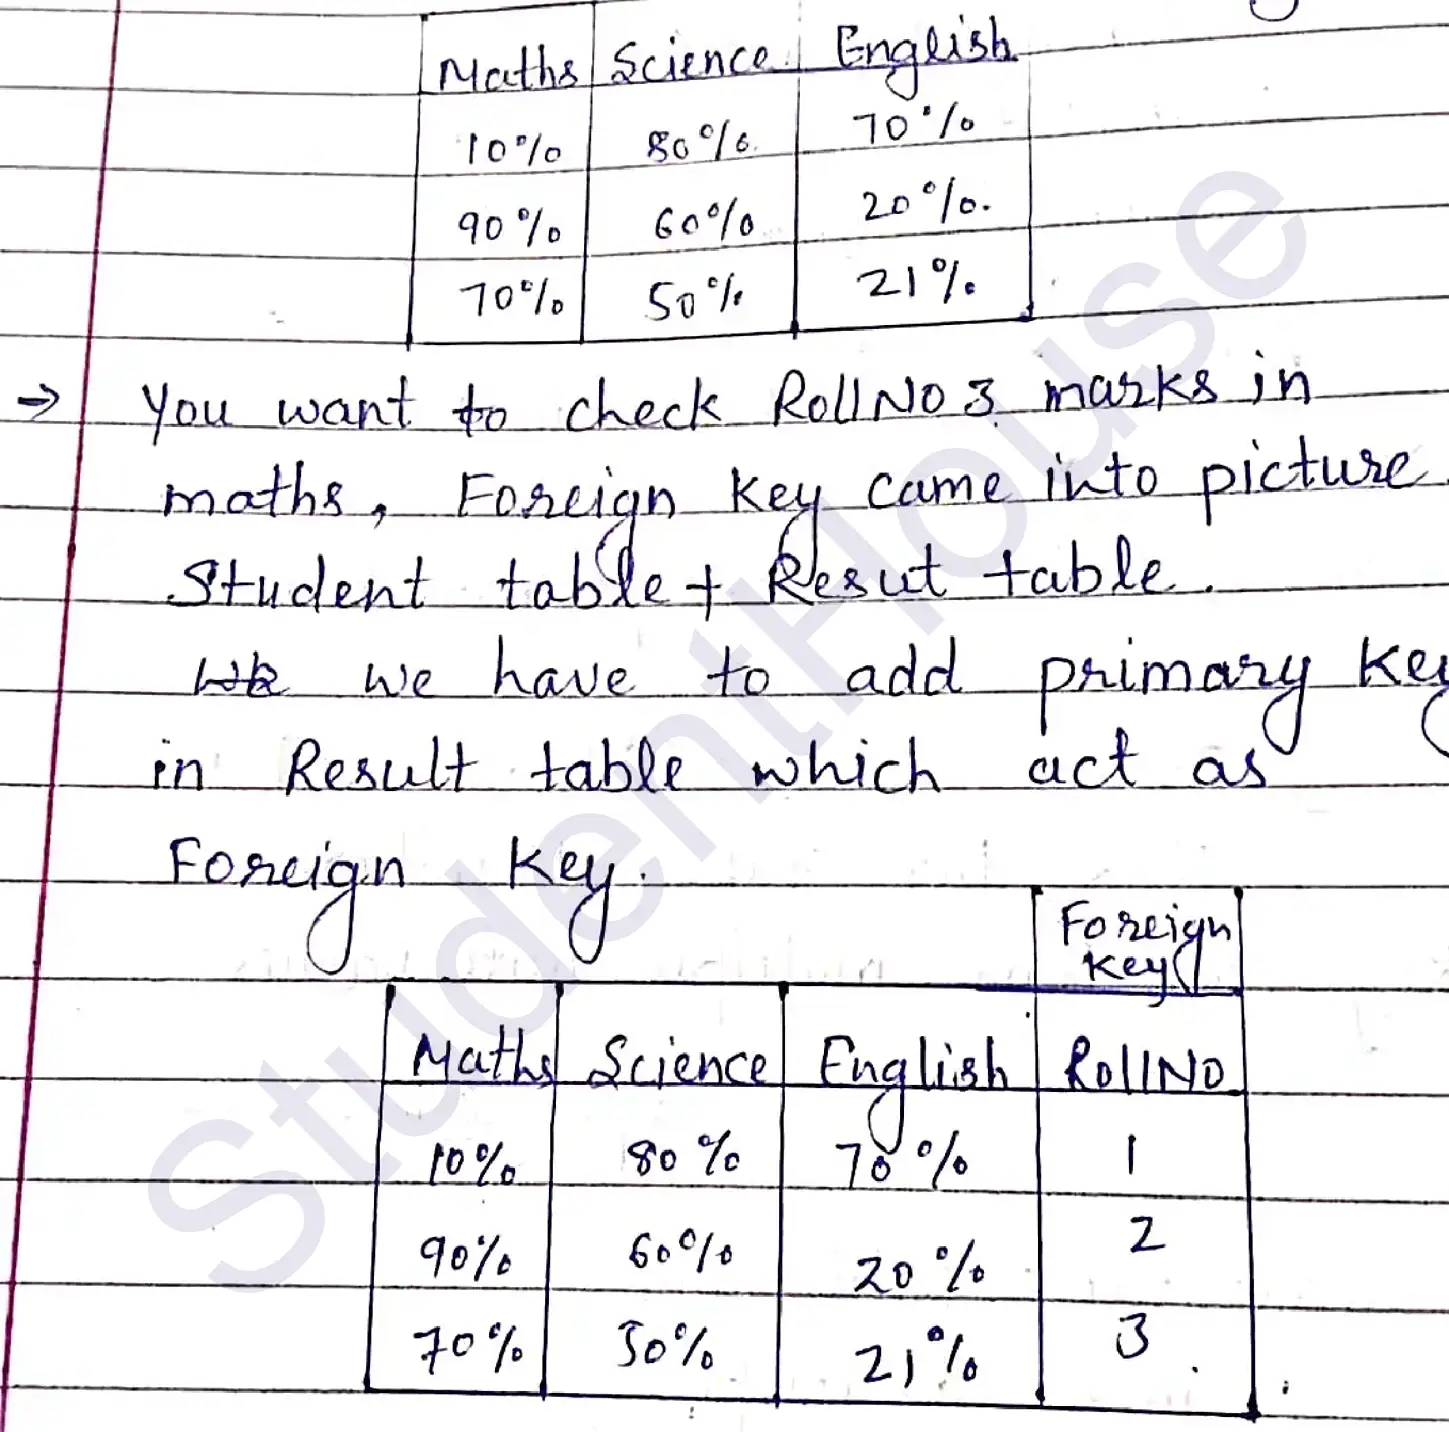 Maths Science English
10% 80% 70%
90% 60% 20%.
70% 50% 21%
→ You want to check RollNo 3 marks in
maths, Foreign Key came into picture.
Student table + Resut table.
we have to add primary Key
in Result table which act as
Foreign Key.
Foreign
Key
Maths Science English RollNo
10% 80% 70% 1
90% 60% 20% 2
70% 50% 21% 3
StudentHouse